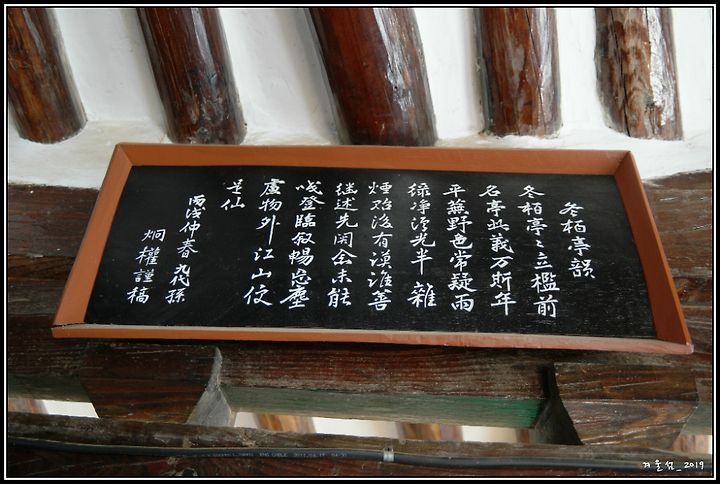 冬栢亭韻
冬栢亭〻立檻前
名亭此義万斯年
平蕪野色常疑雨
綠凈澄光半雜
煙貽後有謨誰善
継述先余未能
登臨叙暢忘塵
慮物外江山
是仙
丙戌仲春九代孫
炯權謹稿
겨울섬_2019